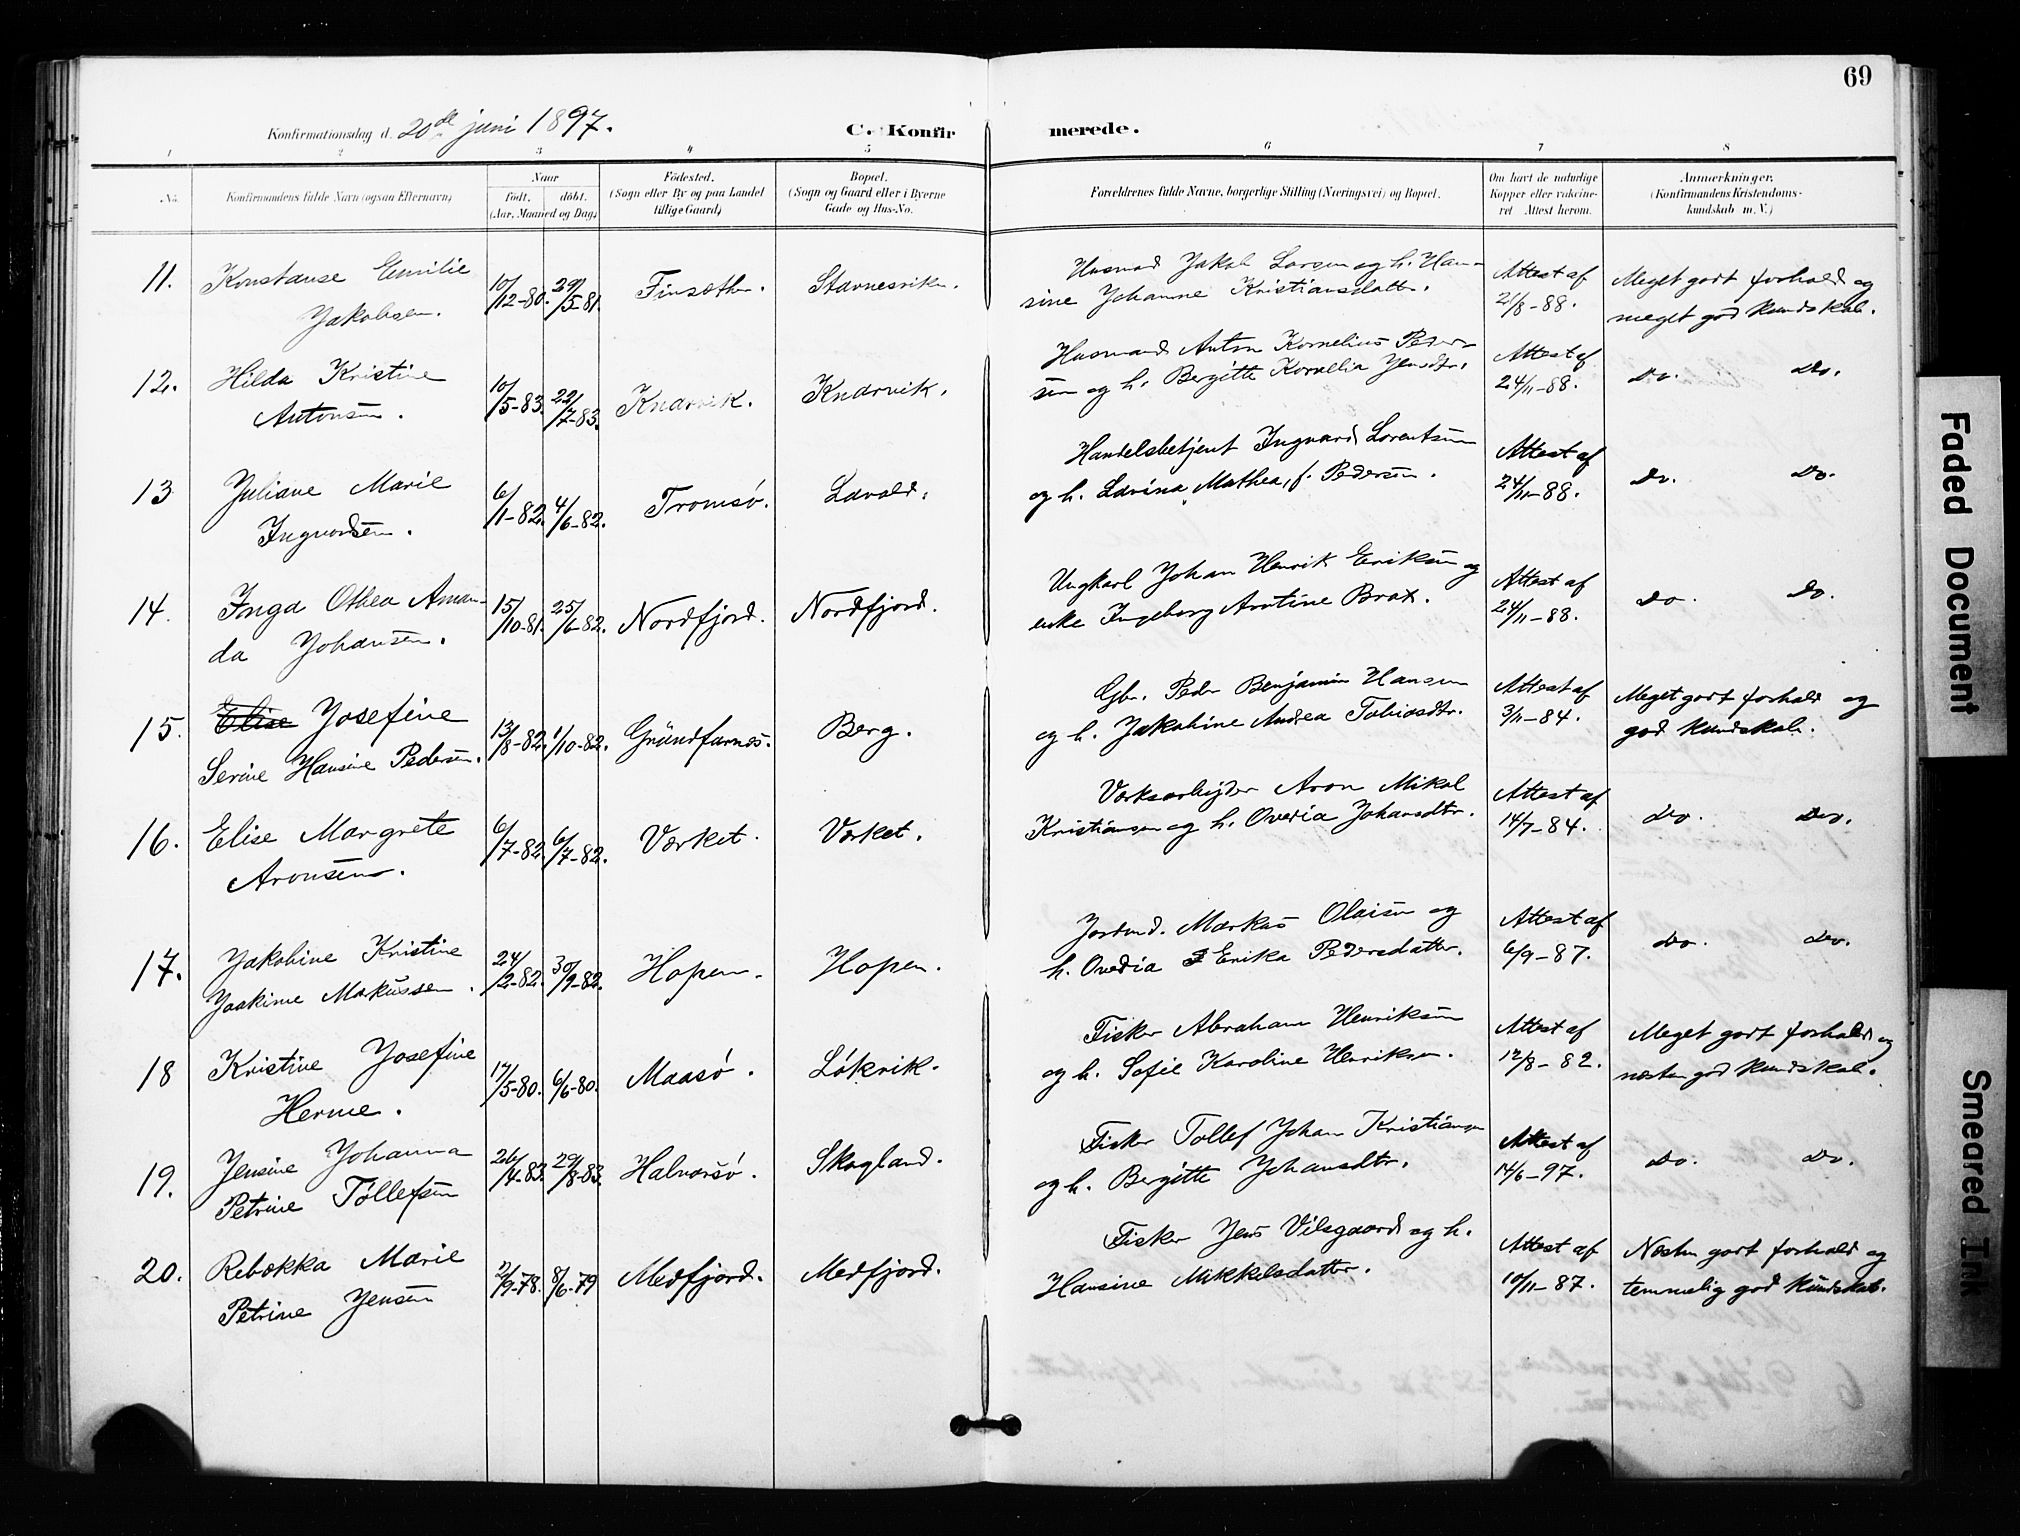 69
Konfirmationsdag d. 20de juni 1897.
C. Konfirmerede.
1 2 3 4 5 6 7 8
No. Konfirmandens fulde Navn (ogsaa Efternavn) Naar født. døbt. (Aar, Maaned og Dag) Fødested. (Sogn eller By og paa Landet tillige Gaard) Bopæl. (Sogn og Gaard eller i Byerne Gade og Hus-No. Forældrenes fulde Navne, borgerlige Stilling (Næringsvei) og Bopæl. Om havt de naturlige Kopper eller vakcineret Attest herom. Anmerkninger. (Konfirmandens Kristendomskundskab m. V.)
11. Konstanse Emilie 10/12-80. 29/5-81. Finsæther. Stavnesvik. Husmand Jakob Larsen og h. Han- Attest af Meget godt forhold og
Jakobsen. sine Johanne Kristiansdatter. 21/8-88. meget god kundskab.
12. Hilda Kristine 10/5-83. 22/7-83. Knarvik. Knarvik. Husmand Anton Kornelius Peder- Attest af Do. Do.
Antonsen. sen og h. Bergitte Kornelia Jensdtr. 24/11-88.
13 Juliane Marie 6/11-82. 4/6-82. Tromsø. Lavold. Handelsbetjent Ingvard Lorentsen Attest af Do. Do.
Ingvardsen. og h. Lavina Mathea, f. Pedersen. 24/11-88.
14. Inga Othea Aman- 15/10-81. 25/6-82. Nordfjord. Nordfjord. Ungkarl Johan Henrik Eriksen og Attest af Do. Do.
da Johansen. enke Ingeborg Arntine Brox. 24/11-88.
15. Elise Josefine 13/8-82. 1/10-82. Grundfarnes. Berg. Gbr. Peder Benjamin Hansen Attest af Meget godt forhold og
Serine Hansine Pedersen. og h. Jakobine Andrea Tobiasdtr. 3/11-84. god kundskab.
16. Elise Margrete 6/7-82. 6/7-82. Værket. Værket. Værksarbejder Aron Mikal Attest af Do. Do.
Aronsen. Kristiansen og h. Ovedia Johansdtr. 14/7-84.
17. Jakobine Kristine 24/2-82. 30/9-82. Hopen. Hopen. Jordmd. Markus Olaisen og Attest af Do. Do.
Joakime Markussen. h. Ovedia Erika Pedersdatter. 6/9-87.
18 Kristine Josefine 17/5-80. 6/6-80. Maasø. Løkvik. Fisker Abraham Henriksen Attest af Meget godt forhold og
Herme. og h. Sofie Karoline Henriksen. 12/8-82. næsten god kundskab.
19. Jensine Johanna 26/4-83. 29/8-83. Halvarsø. Skogland. Fisker Tollef Johan Kristiansen Attest af Do. Do.
Petrine Tøllefsen og h. Bergitte Johansdtr. 14/6-97.
20. Rebekka Marie 2/9-78. 8/6-79 Medfjord. Medfjord. Fisker Jens Vilsgaard og h. Attest af Næsten godt forhold og
Petrine Jensen Hansine Mikkelsdatter. 10/11-87. temmelig god kundskab.
Faded Document
Smeared Ink